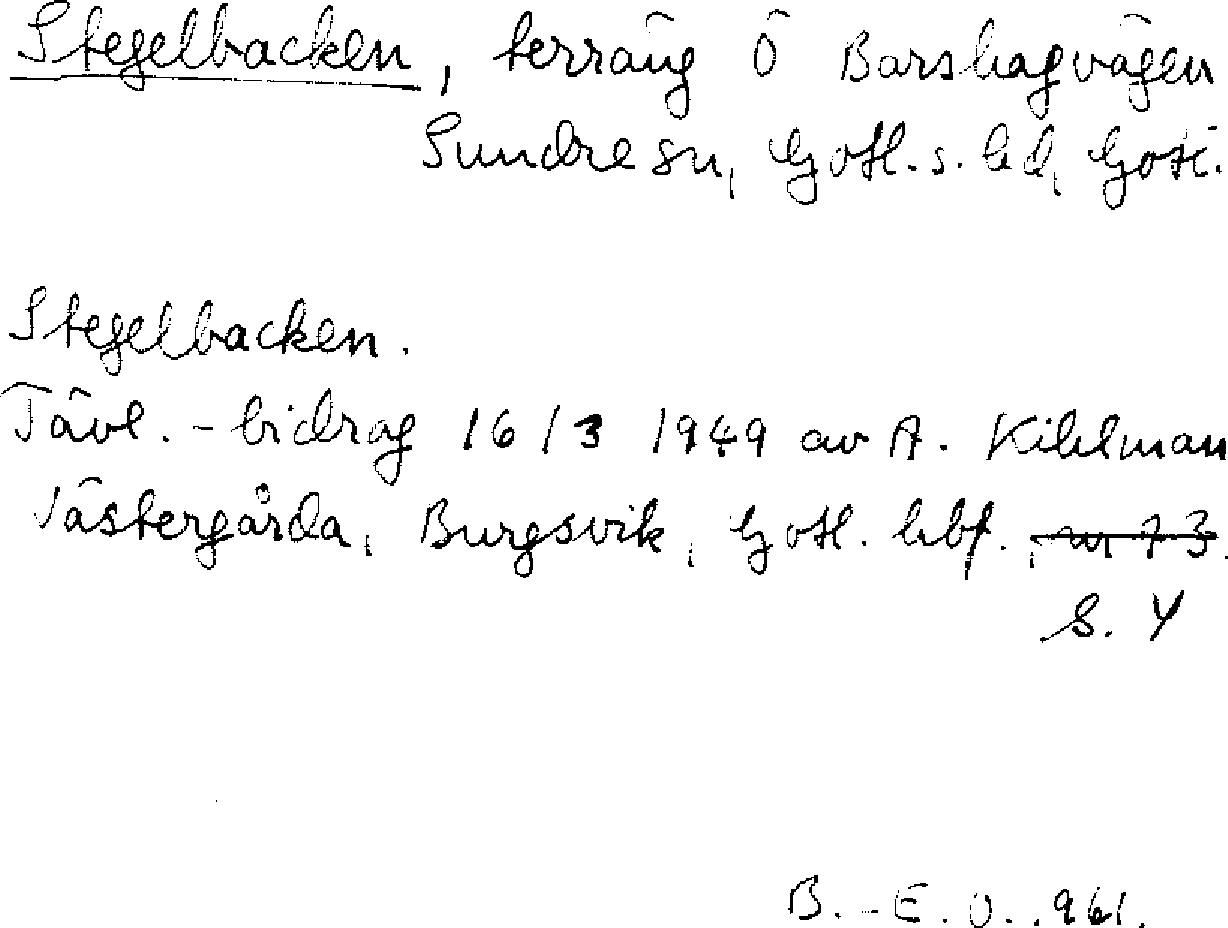 Stegelbacken, terräng Ö Barshagvägen
Sundre sn, Gotl. s. hd, Gotl.
Stegelbacken.
Tävl.-bidrag 16/3 1949 av A. Kihlman
Västergårda, Burgsvik, Gotl. hbf., nr 73.
S. 4
B.-E. O. .961.